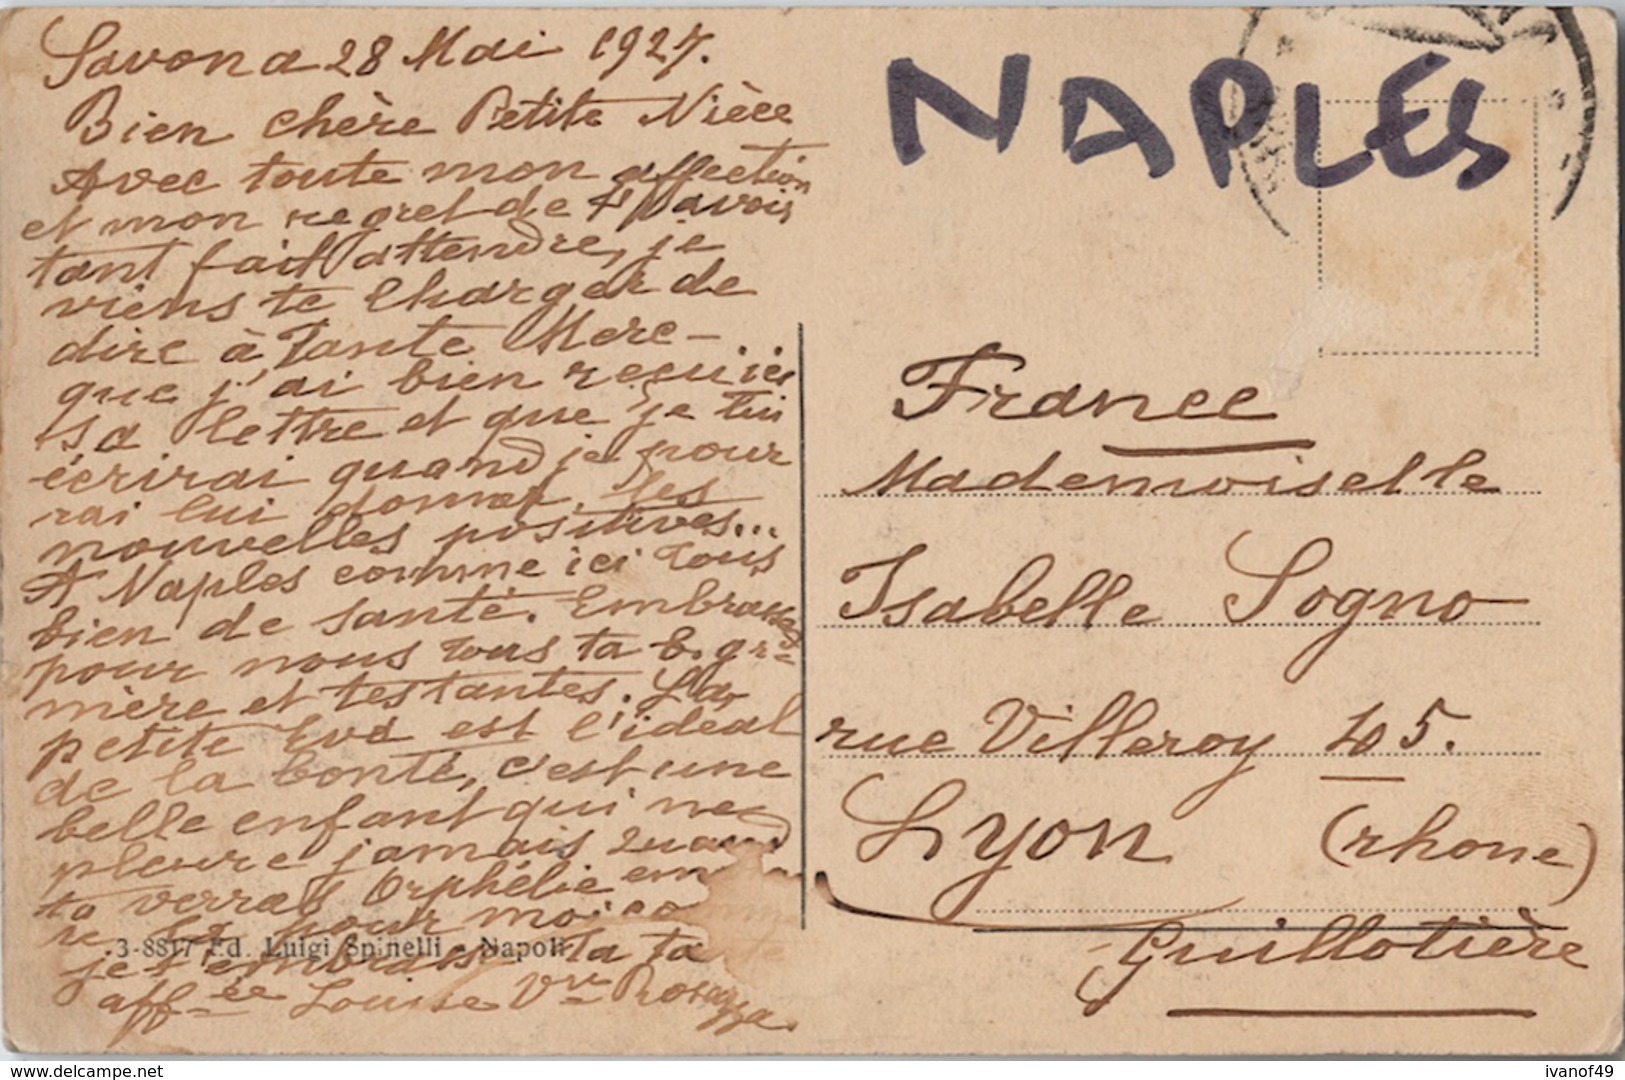 Savona 28 Mai 1927.
Bien chère Petite Nièce
Avec toute mon affection
et mon regret de t'avoir
tant fait attendre, je
viens te charger de
dire à Tante Merc-
que j'ai bien reçu ici
sa lettre et que je lui
écrirai quand je pour
rai lui donner des
nouvelles positives...
A Naples comme ici tous
bien de santé. Embrasses
pour nous tous ta b. gr=
mère et tes tantes. La
petite Eva est l'idéal
de la bonté, c'est une
belle enfant qui ne
pleure jamais quand
tu verras Orphélie em
la pour moi comme
je t'embrasse ta tante
aff=ée Louise Vve Rosazza.
3-8817 Ed. Luigi Spinelli - Napoli
NAPLES
France
Mademoiselle
Isabelle Sogno
rue Villeroy 45.
Lyon (rhone)
Guillotière
delcampe.net
ivanof49